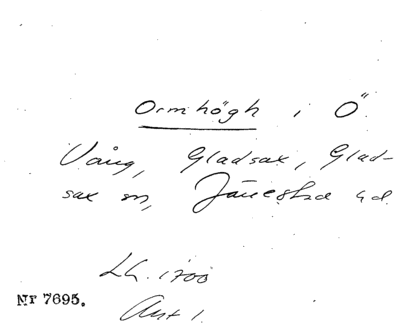 Ormhögh i Ö.
Vång, Gladsax, Glad-
sax sn, Järrestad hd.
LG. 1700
Nr 7695.
Akt 1.